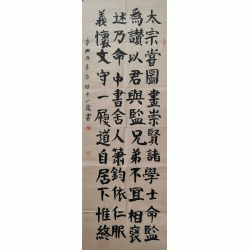 太宗嘗圖畫崇賢諸學士命監
為讚以君與監兄弟不宜相褒
述乃命中書舍人蕭鈞依仁服
義懷文守一履道自居下帷終